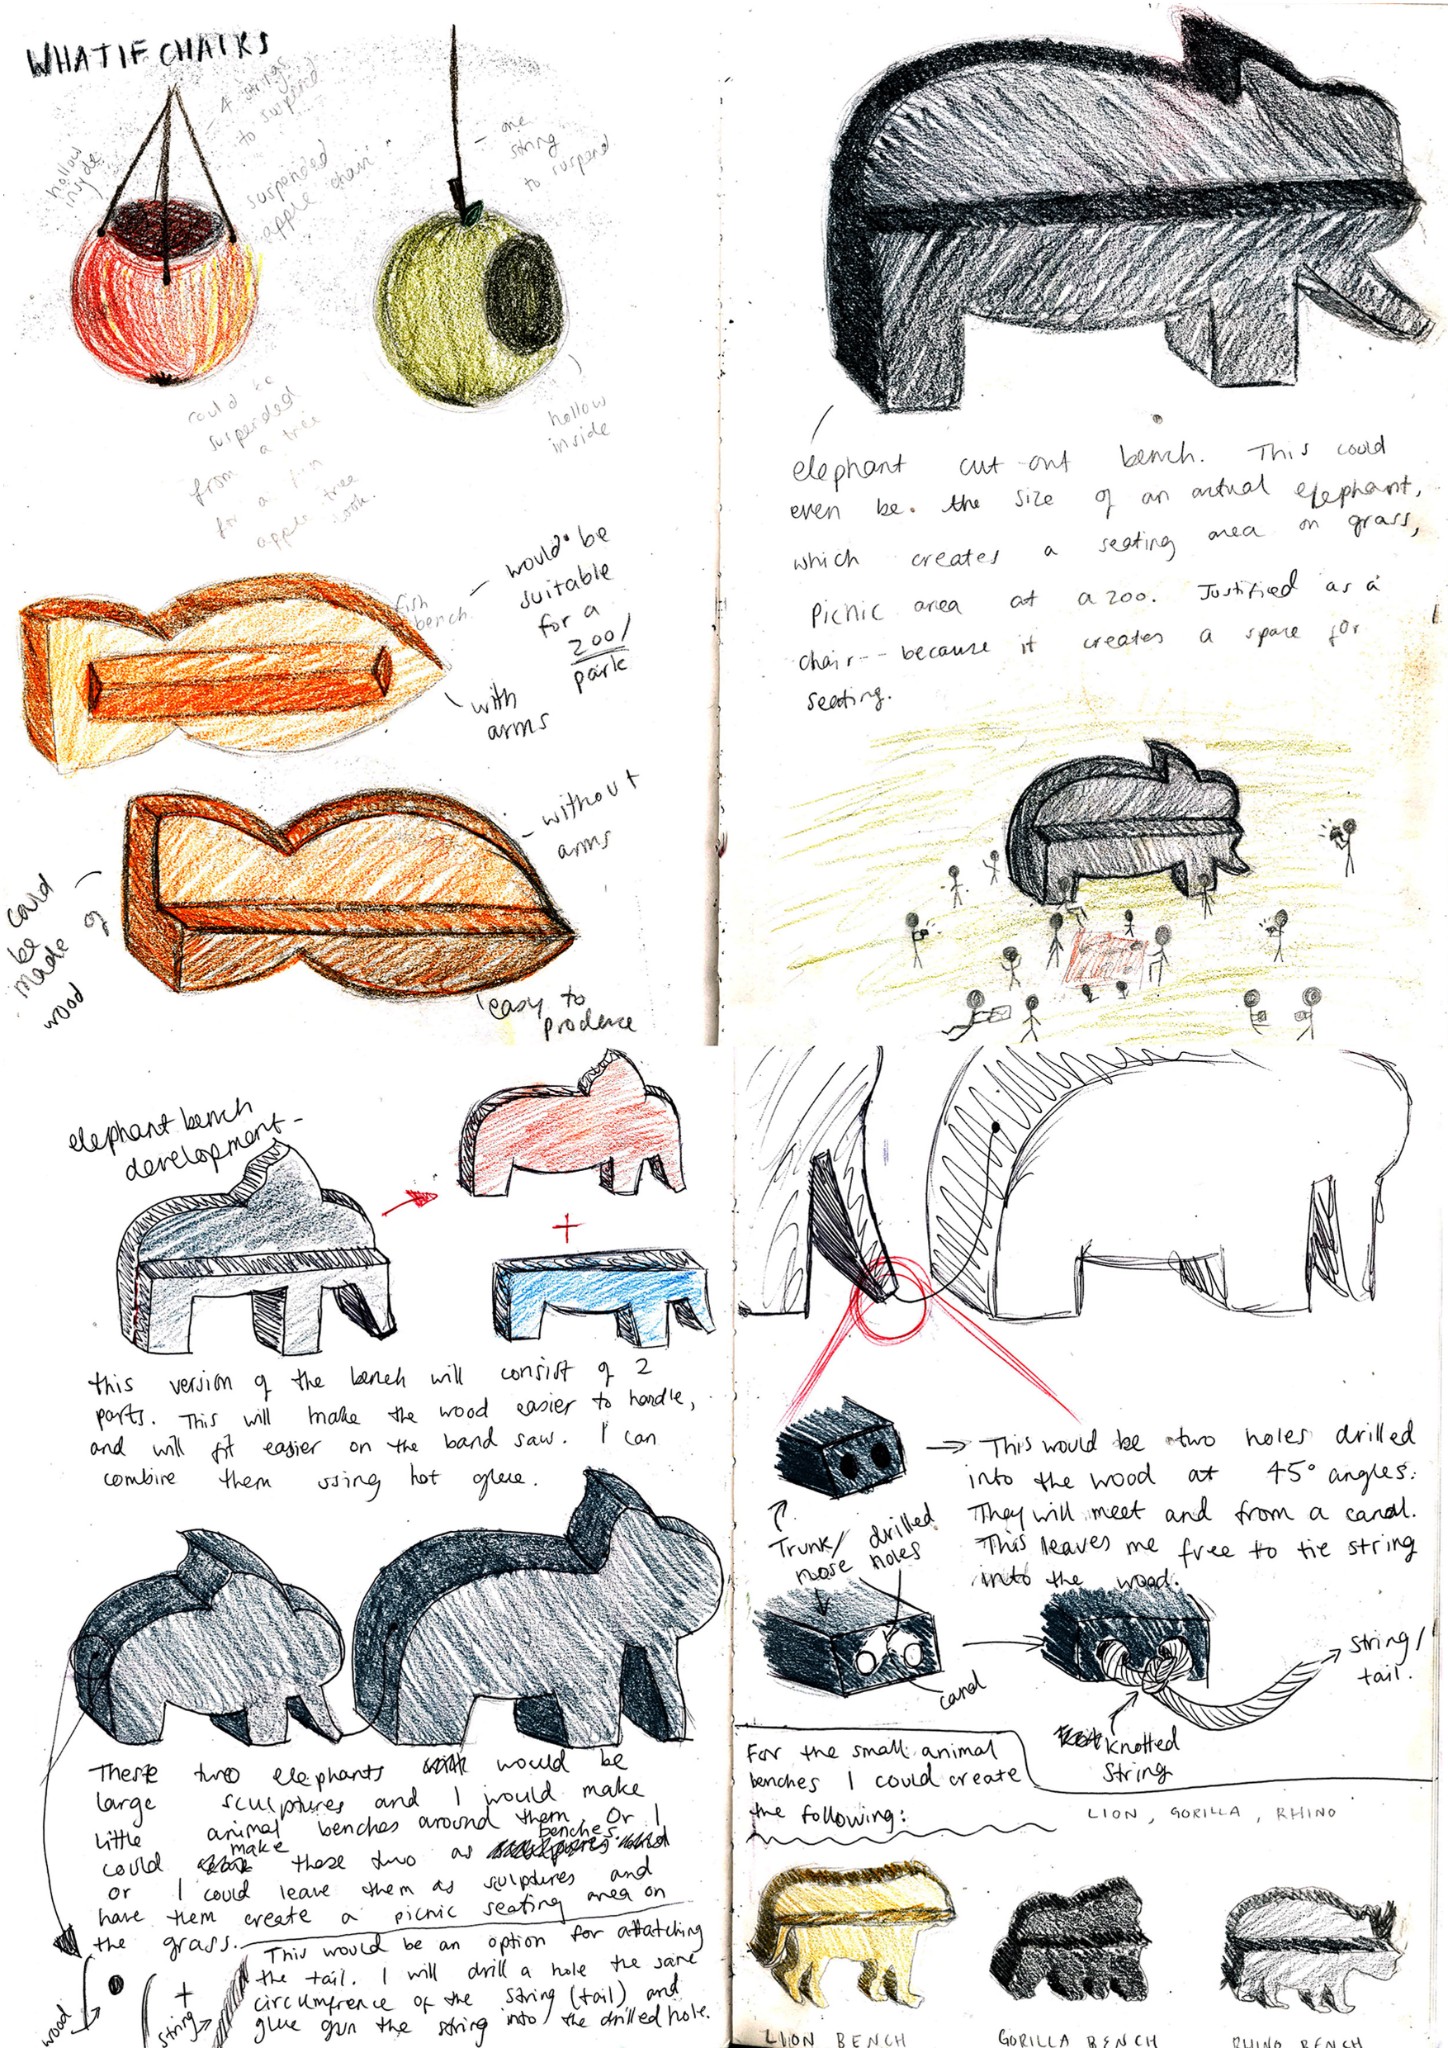 WHAT IF CHAIRS
4 strings
to suspend
hollow
inside
suspended
apple chair
one
string
to suspend
could be
suspended
from a tree
for a fun
apple tree
look.
hollow
inside
fish
bench
would be
suitable
for a
zoo/
park
with
arms
without
arms
could
be
made
of
wood
easy to
produce
elephant cut-out bench. This could
even be. the size of an actual elephant,
which creates a seating area on grass,
picnic area at a zoo. Justified as a
chair-- because it creates a space for
seating.
elephant bench
development-
+
this version of the bench will consist of 2
parts. This will make the wood easier to handle,
and will fit easier on the band saw. I can
combine them using hot glue.
These two elephants would be
large sculptures and I would make
little animal benches around them. Or I
could make these two as benches
or I could leave them as sculptures and
have them create a picnic seating area on
the grass.
This would be an option for attatching
the tail. I will drill a hole the same
circumfrence of the string (tail) and
glue gun the string into the drilled hole.
wood
+
string
→ This would be two holes drilled
into the wood at 45° angles.
They will meet and from a canal.
This leaves me free to tie string
into the wood.
Trunk/
nose
drilled
holes
canal
string/
tail.
knotted
string
For the small animal
benches I could create
the following:
LION, GORILLA, RHINO
LION BENCH
GORILLA BENCH
RHINO BENCH